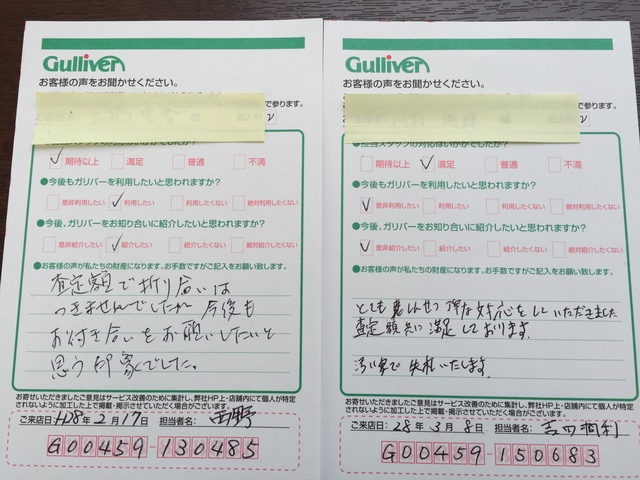 Gulliver
お客様の声をお聞かせください。
で参ります。
期待以上
満足
普通
不満
●今後もガリバーを利用したいと思われますか?
是非利用したい
利用したい
利用したくない
絶対利用したくない
●今後、ガリバーをお知り合いに紹介したいと思われますか?
是非紹介したい
紹介したい
紹介したくない
絶対紹介したくない
●お客様の声が私たちの財産になります。お手数ですがご記入をお願い致します。
査定額で折り合いは
つきませんでしたが 今後も
お付き合いをお願いしたいと
思う印象でした。
お寄せいただきましたご意見はサービス改善のために集計し、弊社HP上・店舗内にて個人が特定
されないように加工した上で掲載・掲示させていただく場合がございます。
ご来店日:H28年2月17日 担当者名:
G00459130485
Gulliver
お客様の声をお聞かせください。
で参ります。
期待以上
満足
普通
不満
●今後もガリバーを利用したいと思われますか?
是非利用したい
利用したい
利用したくない
絶対利用したくない
●今後、ガリバーをお知り合いに紹介したいと思われますか?
是非紹介したい
紹介したい
紹介したくない
絶対紹介したくない
●お客様の声が私たちの財産になります。お手数ですがご記入をお願い致します。
とても
対応をしていただきました
査定額も満足しております。
お寄せいただきましたご意見はサービス改善のために集計し、弊社HP上・店舗内にて個人が特定
されないように加工した上で掲載・掲示させていただく場合がございます。
ご来店日:28年3月8日 担当者名:
G00459150683